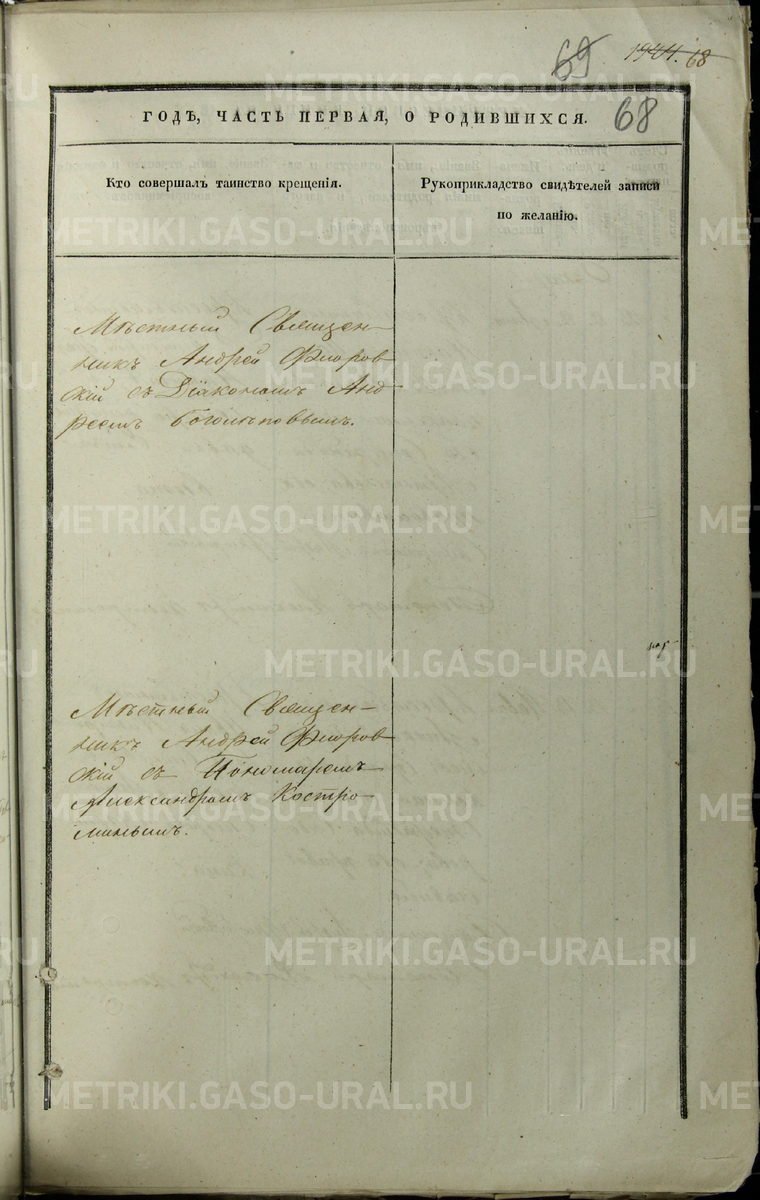 69 1944. 68
68
ГОДЪ, ЧАСТЬ ПЕРВАЯ, О РОДИВШИХСЯ.
Кто совершалъ таинство крещенія.
Рукоприкладство свидѣтелей записи
по желанію.
Мѣстный Священ-
никъ Андрей Флоров
скій съ Діакономъ Анд
реемъ Боголѣповымъ.
Мѣстный Священ-
никъ Андрей Флоров
скій съ Пономаремъ
Александромъ Костро-
минымъ.
METRIKI.GASO-URAL.RU